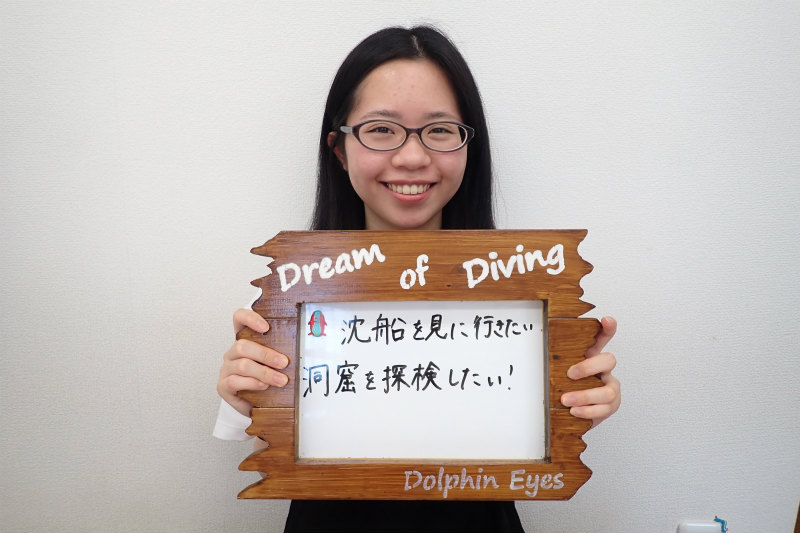 Dream of Diving
沈船を見に行きたい
洞窟を探検したい!
Dolphin Eyes